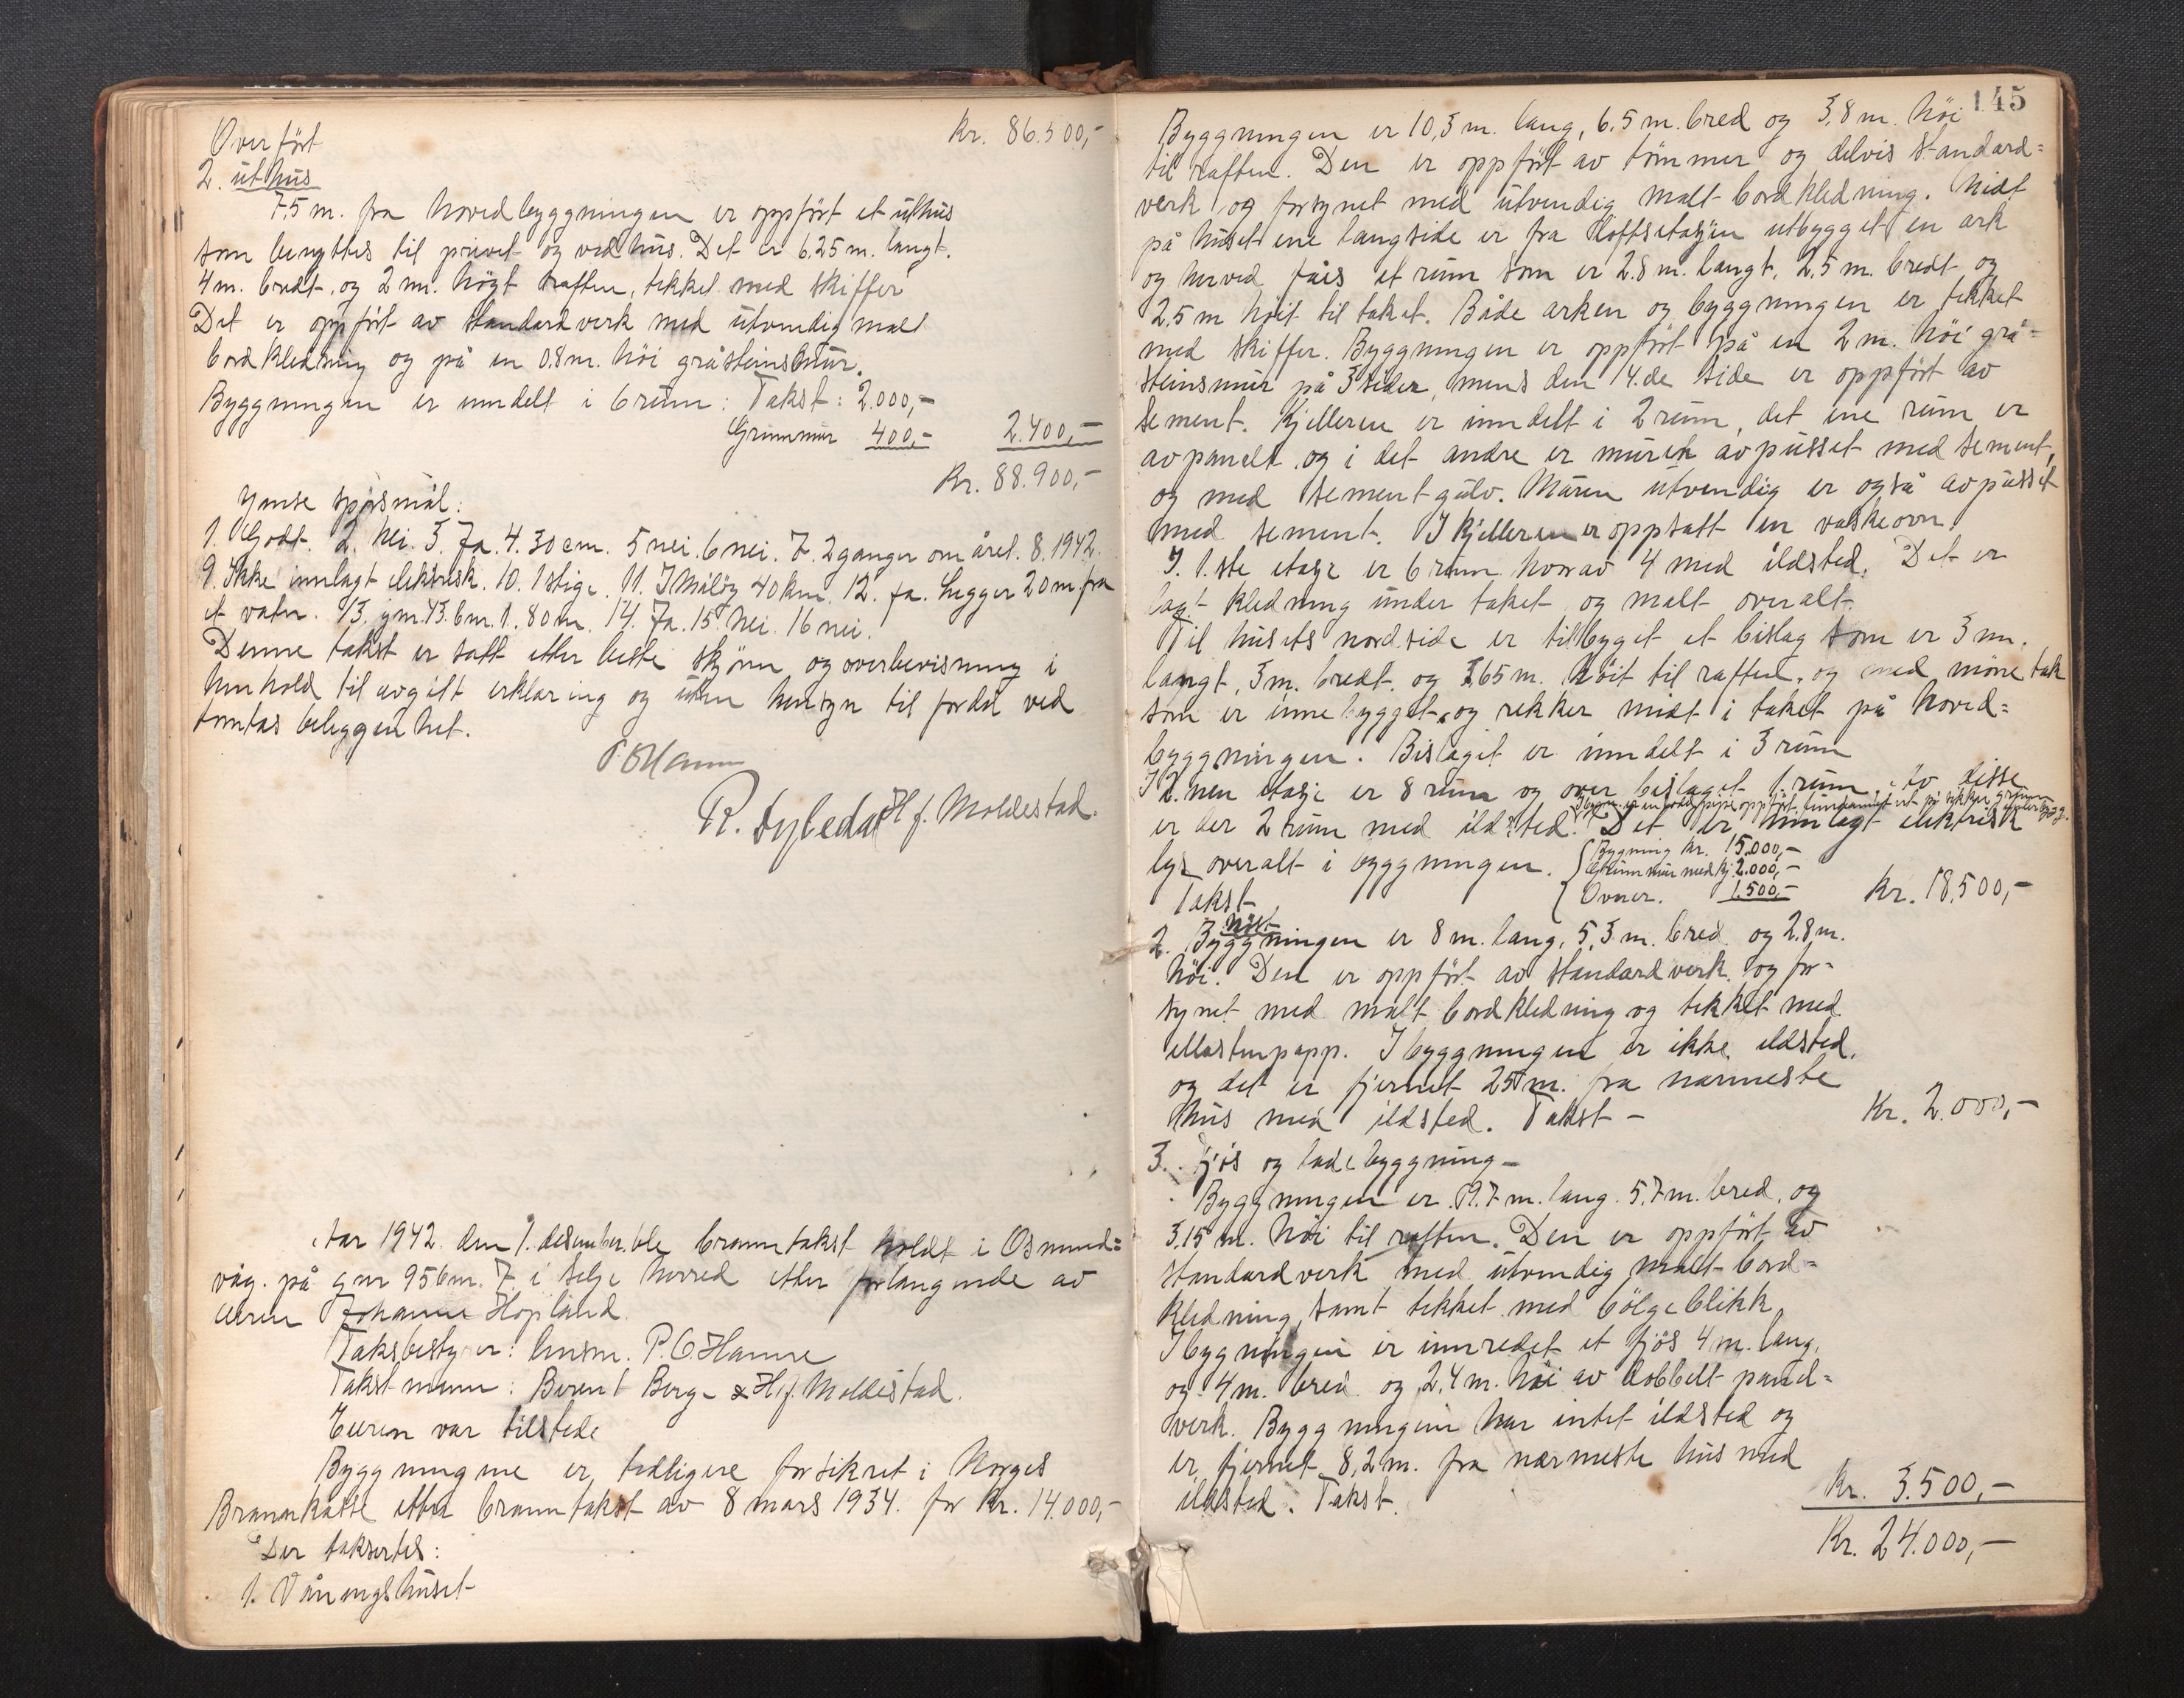 Overført Kr. 86.500,-
2. uthus
7,5 m. fra hovedbyggningen er oppført et uthus
som benyttes til privet og vedhus. Det er 6.25 m. langt.
4 m. bredt, og 2 m. högt raften, tekket med skiffer
Det er oppfört av standardverk med utvendig malt
bordkledning og på en 0.8 m. höi gråsteinsmur.
Byggningen er inndelt i 6 rum: Takst: 2.000,-
Grunnmur 400,- 2.400,-
Kr. 88.900,-
Ymse spörsmål:
1. Godt. 2. Nei. 3. Ja. 4. 30 cm. 5 nei. 6 nei. 7. 2 ganger om året. 8. 1942.
9. Ikke innlagt elektrisk. 10. 1 stige. 11. I Måløy 40 km. 12. Ja. Ligger 20 m fra
et vatn. 13. ym. 13. 6 m. 1. 80 m. 14. Ja. 15. Nei. 16 nei.
Denne takst er satt etter beste skjönn og overbevisning i
henhold til avgitt erklæring og uten hensyn til fordel ved
tomtas beliggenhet.
P. O Hamre
R. Dybedal H. J. Moldestad.
Aar 1942 den 1. desember ble branntakst holdt i Osmund=
våg. på gnr 95 bnr. 7 i Selje herred etter forlangende av
eieren Johanne Hopland.
Takstbestyrer: lensm. P. O. Hamre
Takstmenn: Berent Berge & H. J. Moldestad.
Eieren var tilstede
Byggningene er tidligere forsikret i Norges
Brannkasse etter branntakst av 8 mars 1934. for Kr. 14.000,-
Der taksertes:
1. Våningshuset
145
Byggningen er 10,3 m. lang, 6.5 m. bred og 3,8 m. höi
til raften. Den er oppfört av tömmer og delvis standard=
verk og forsynet med utvendig malt bordkledning. Midt
på huset ene langside er fra loftsetasjen utbygget en ark
og herved fåes et rum som er 2.8 m. langt, 2.5 m. bredt og
2.5 m höit til taket. Både arken og byggningen er tekket
med skiffer. Byggningen er oppfört på en 2 m. höi grå=
steinsmur på 3 sider, mens den 4.de side er oppfört av
sement. Kjelleren er inndelt i 2 rum, det ene rum er
avpanelt og i det andre er muren avpusset med sement,
og med sementgulv. Muren utvendig er også avpusset
med sement. I kjelleren er oppsatt en vaskeovn.
I 1.ste etasje er 6 rum hvorav 4 med ildsted. Det er
lagt kledning under taket og malt overalt.
Til husets nordside er tilbyget et bislag som er 3 m.
langt, 3 m. bredt. og 3,65 m. höit til raften, og med mönetak
som er innebygget og rekker midt i taket på hoved=
byggningen. Bislaget er inndelt i 3 rum
I 2.nen etasje er 8 rum og over bislaget 1 rum. Av disse
er der 2 rum med ildsted. Det er innlagt elektrisk
lys overalt i byggningen. Bygning Kr. 15.000,-
Grunnmur med kj. 2.000,-
Takst Ovner. 1.500,- Kr. 18.500,-
2. Byggningen er 8 m. lang, 5,3 m. bred og 2.8 m.
höi. Den er oppfört av standardverk og for-
synet med malt bordkledning og tekket med
ellastenpapp. I byggningen er ikke ildsted,
og det er fjernet 25 m. fra nærmeste
hus med ildsted. Takst - Kr. 2.000,-
3. Fjös og ladebyggning -
Byggningen er 9.7 m. lang. 5.7 m. bred, og
3.15 m. höi til raften. Den er oppfört av
standardverk med utvendig malt bord=
kledning, samt tekket med bölgeblikk
I bygningen er innredet et fjös 4 m. lang,
og 4 m. bred og 2,4 m. höi av dobbelt panel=
verk. Byggningen har intet ildsted og
er fjernet 8,2 m. fra nærmeste hus med
ildsted. Takst. Kr. 3.500,-
Kr. 24.000,-